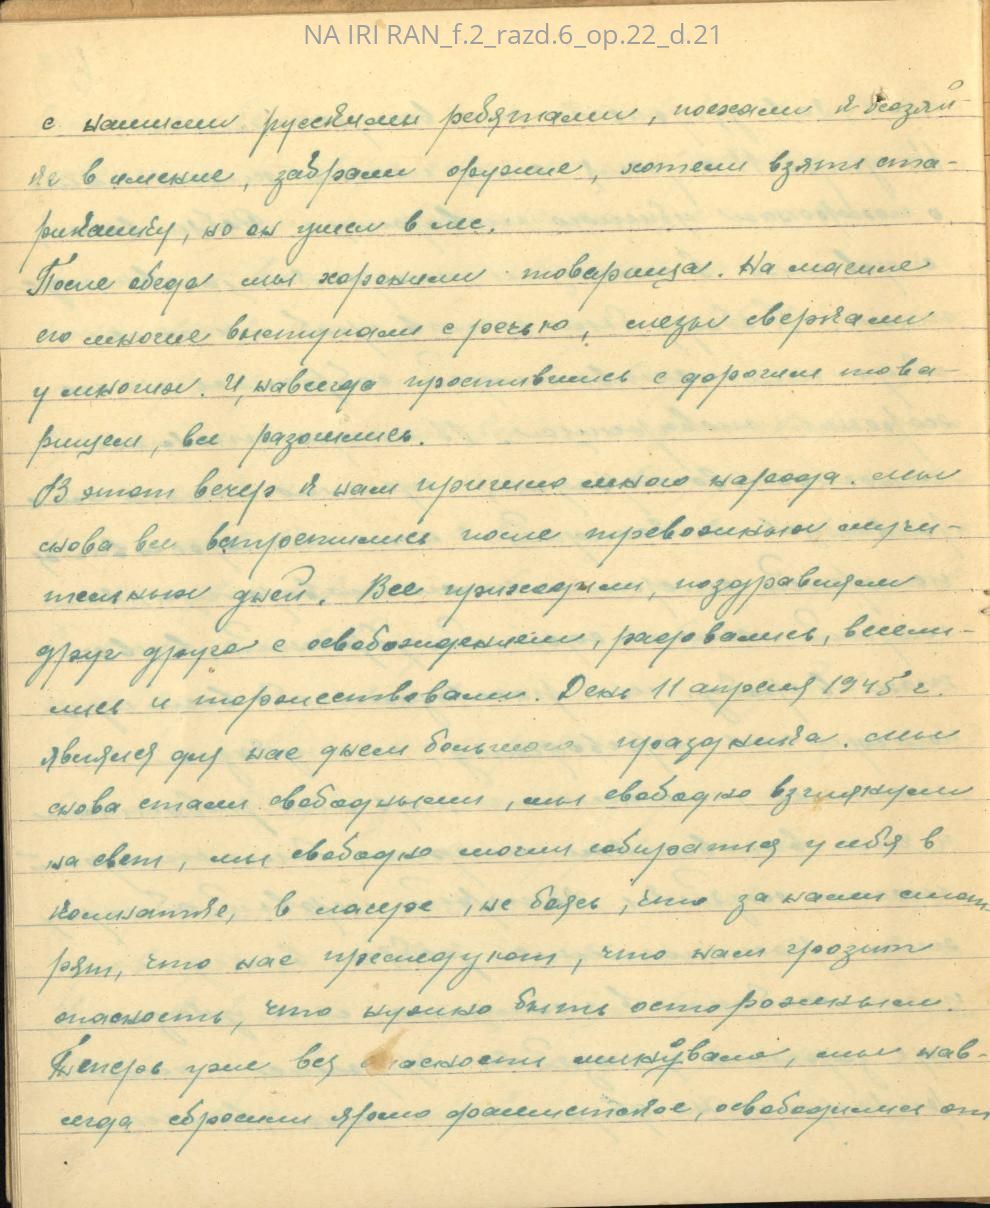 NA IRI RAN_f.2_razd.6_op.22_d.21
с нашими русскими ребятами, поехали к хозяй-
ке в имение, забрали оружие, хотели взять ста-
рикашку, но он ушел в лес.
После обеда мы хоронили товарища. На могиле
его многие выступали с речью, слезы сверкали
у многих. И, навсегда простившись с дорогим това-
рищем, все разошлись.
В этот вечер к нам пришло много народа. Мы
снова все встретились после тревожных мучи-
тельных дней. Все приходили, поздравляли
друг друга с освобождением, радовались, весели-
лись и торжествовали. День 11 апреля 1945 г.
явился для нас днем большого праздника. Мы
снова стали свободными, мы свободно взглянули
на свет, мы свободно могли собираться у себя в
комнатке, в лагере, не боясь, что за нами смот-
рят, что нас преследуют, что нам грозит
опасность, что нужно быть осторожным.
Теперь уже вся опасность миновала, мы нав-
сегда сбросили ярмо фашистское, освободились от